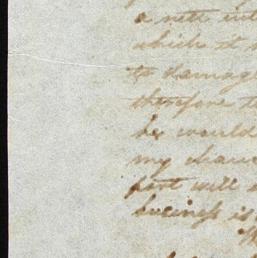 a nett in
which it
to damag
therefore t
be would
my chan
part will
business is